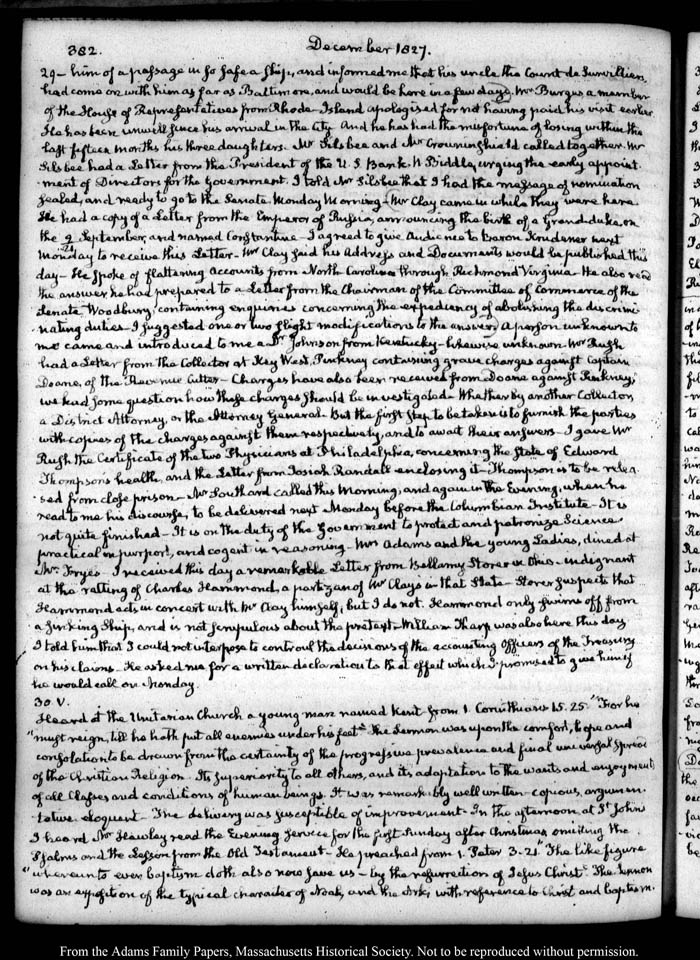 382. December 1827.
29— him of a passage in so safe a Ship, and informed me that his uncle the Count de Survilliers,
had come on with him as far as Baltimore, and would be here in a few days. Mr Burges a member
of the House of Representatives from Rhode-Island apologised for not having paid his visit earlier.
He has been unwell since his arrival in the City. And he has had the misfortune of losing within the
last fifteen months his three daughters. Mr Silsbee and Mr Crowninshield called together. Mr
Silsbee had a Letter from the President of the U.S. Bank. N Biddle, urging the early appoint-
ment of Directors for the Government. I told Mr Silsbee that I had the message of nomination
sealed, and ready to go to the Senate Monday Morning— Mr Clay came in while they were here.
He had a copy of a Letter from the Emperor of Russia, announcing the birth of a Grand-duke, on
the 9/21 September, and named Constantine— I agreed to give Audience to Baron Krudener next
Monday to receive this Letter— Mr Clay said his Address and Documents would be published this
day— He spoke of flattering accounts from North Carolina through Richmond Virginia— He also read
the answer he had prepared to a Letter from the Chairman of the Committee of Commerce of the
Senate Woodbury, containing enquiries concerning the expediency of abolishing the discrimi-
nating duties— I suggested one or two slight modifications to the answer. A person unknown to
me came and introduced to me a Dr Johnson from Kentucky— likewise unknown. Mr Rush
had a Letter from the Collector at Key West, Pinkney containing grave charges against Captain
Doane, of the Revenue Cutter— Charges have also been received from Doane against Pinkney;
we had some question how these charges should be investigated— Whether by another Collector
a District Attorney, or the Attorney General— But the first step to be taken is to furnish the parties
with copies of the charges against them respectively, and to await their answers— I gave Mr
Rush the Certificate of the two Physicians at Philadelphia, concerning the state of Edward
Thompson's health, and the Letter from Josiah Randall enclosing it— Thompson is to be relea-
sed from close prison— Mr Southard called this Morning, and again in the Evening, when he
read to me his discourse, to be delivered next Monday before the Columbian Institute— It is
not quite finished— It is on the duty of the Government to protect and patronize Science
practical in purport, and cogent in reasoning— Mrs Adams and the young Ladies, dined at
Mr Frye's— I received this day a remarkable Letter from Bellamy Storer in Ohio— indignant
at the ratting of Charles Hammond, a partizan of Mr Clay's in that State— Storer suspects that
Hammond acts in concert with Mr Clay himself; but I do not. Hammond only swims off from
a sinking Ship, and is not scrupulous about the pretext— William Tharp was also here this day
I told him that I could not interpose to controul the decisions of the accounting Officers of the Treasury
on his claims. He asked me for a written declaration to that effect which I promised to give him if
he would call on Monday.
30. V.
Heard at the Unitarian Church a young man named Kent from 1. Corinthians 15. 25. "For he
"must reign, till he hath put all enemies under his feet." The Sermon was upon the comfort, hope and
consolation, to be drawn from the certainty of the progressive prevalence and final universal spread
of the Christian Religion. Its superiority to all others, and its adaptation to the wants and enjoyments
of all Classes and conditions of human beings. It was remarkably well written— copious, argumen-
tative eloquent— The delivery was susceptible of improvement— In the afternoon at St John's
I heard Mr Hawley read the Evening service for the first Sunday after Christmas omitting the
Psalms and the Lesson from the Old Testament— He preached from 1. Peter 3-21 "The like figure
"whereunto even baptism doth also now save us— by the resurrection of Jesus Christ." The Sermon
was an exposition of the typical character of Noah, and the Ark, with reference to Christ and baptism.
From the Adams Family Papers, Massachusetts Historical Society. Not to be reproduced without permission.